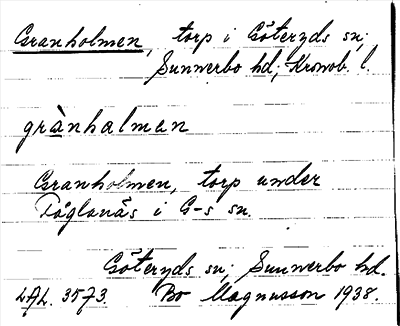 Granholmen, torp i Göteryds sn;
Sunnerbo hd; Kronob. l.
grànhalmen
Granholmen, torp under
Fåglanäs i G-s sn.
Göteryds sn; Sunnerbo hd.
LAL. 3573. Bo Magnusson 1938.